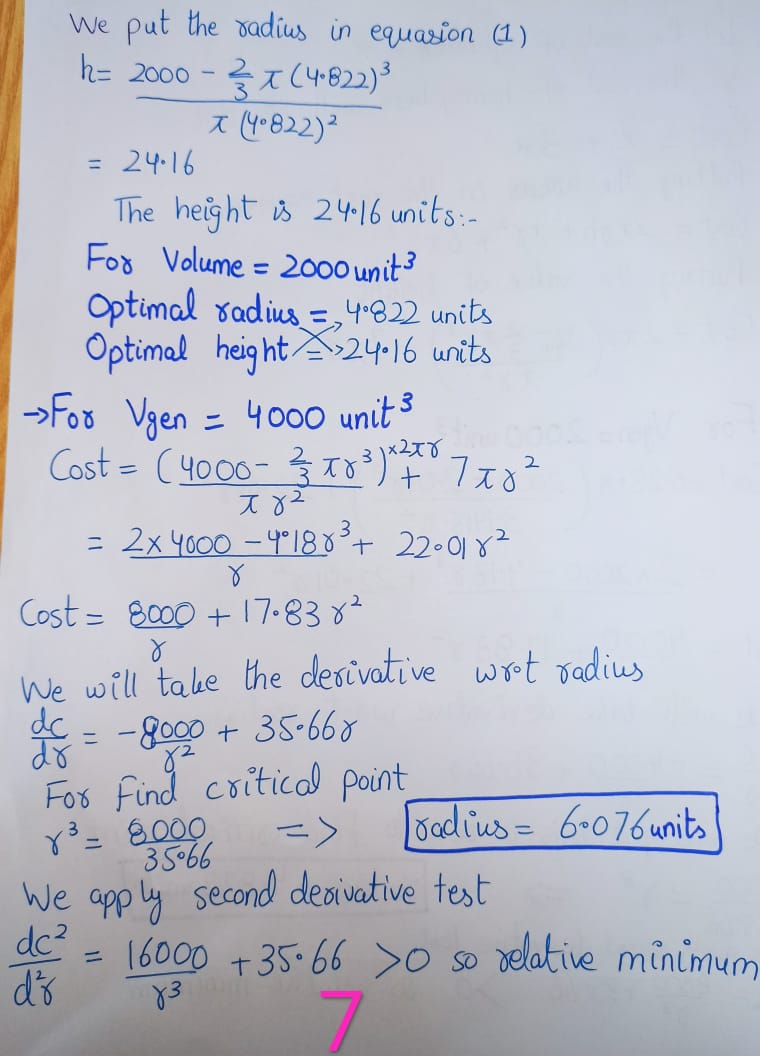 We put the radius in equasion (1)
h= 2000 - 2/3 π (4.822)³ / π (4.822)²
= 24.16
The height is 24.16 units:-
For Volume = 2000 unit³
Optimal radius = 4.822 units
Optimal height => 24.16 units
→For Vgen = 4000 unit³
Cost = (4000 - 2/3 πr³) / πr² ×2πr + 7πr²
= 2×4000 - 4.18r³ / r + 22.01 r²
Cost = 8000 / r + 17.83 r²
We will take the derivative w.r.t radius
dc/dr = -8000/r² + 35.66r
For find critical point
r³ = 8000/35.66 => radius = 6.076 units
We apply second derivative test
dc²/d²r = 16000/r³ + 35.66 >0 so relative minimum
7